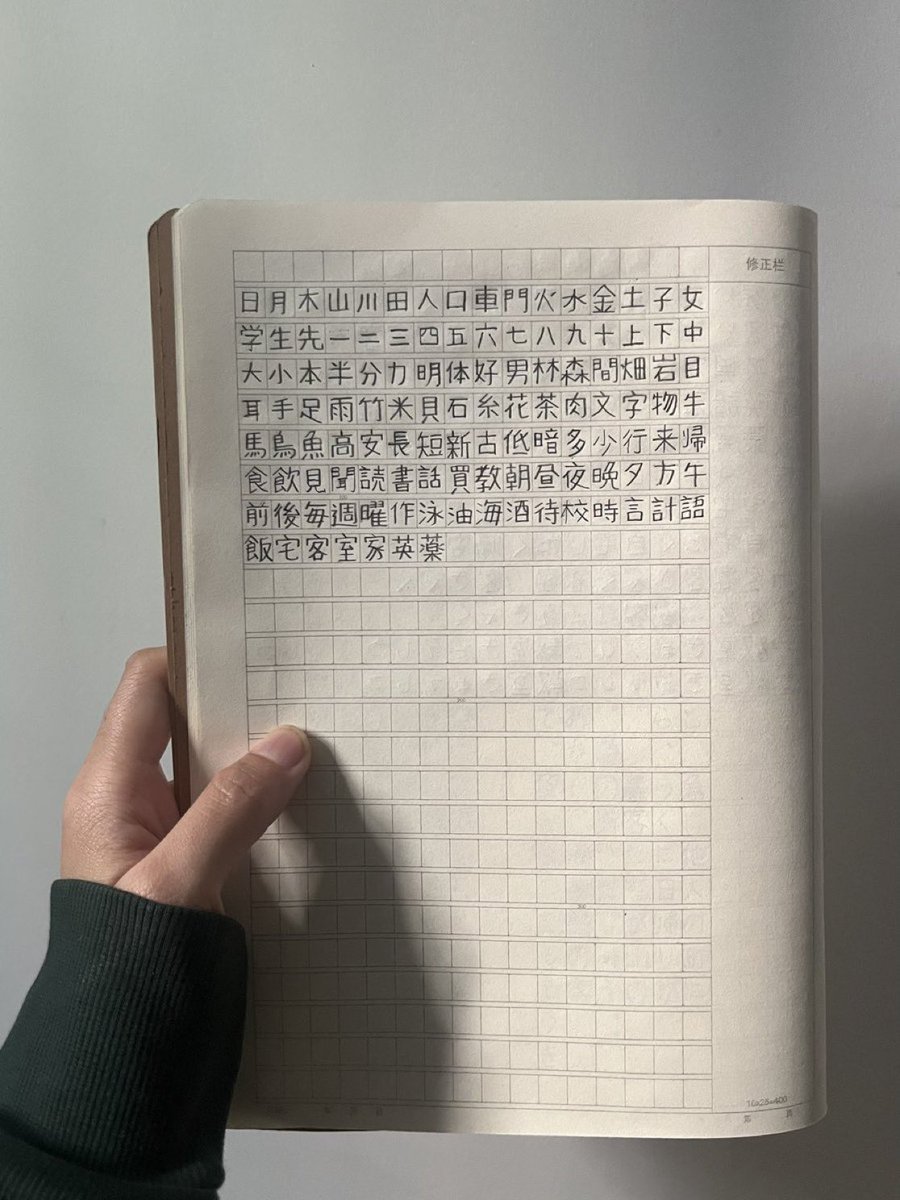 修正栏
日月木山川田人口車門火水金土子女
学生先一二三四五六七八九十上下中
大小本半分力明体好男林森間畑岩目
耳手足雨竹米貝石糸花茶肉文字物牛
馬鳥魚高安長短新古低暗多少行来帰
食飲見聞読書話買教朝昼夜晩夕方午
前後毎週曜作泳油海酒待校時言計語
飯宅客室家英薬
16×25=400